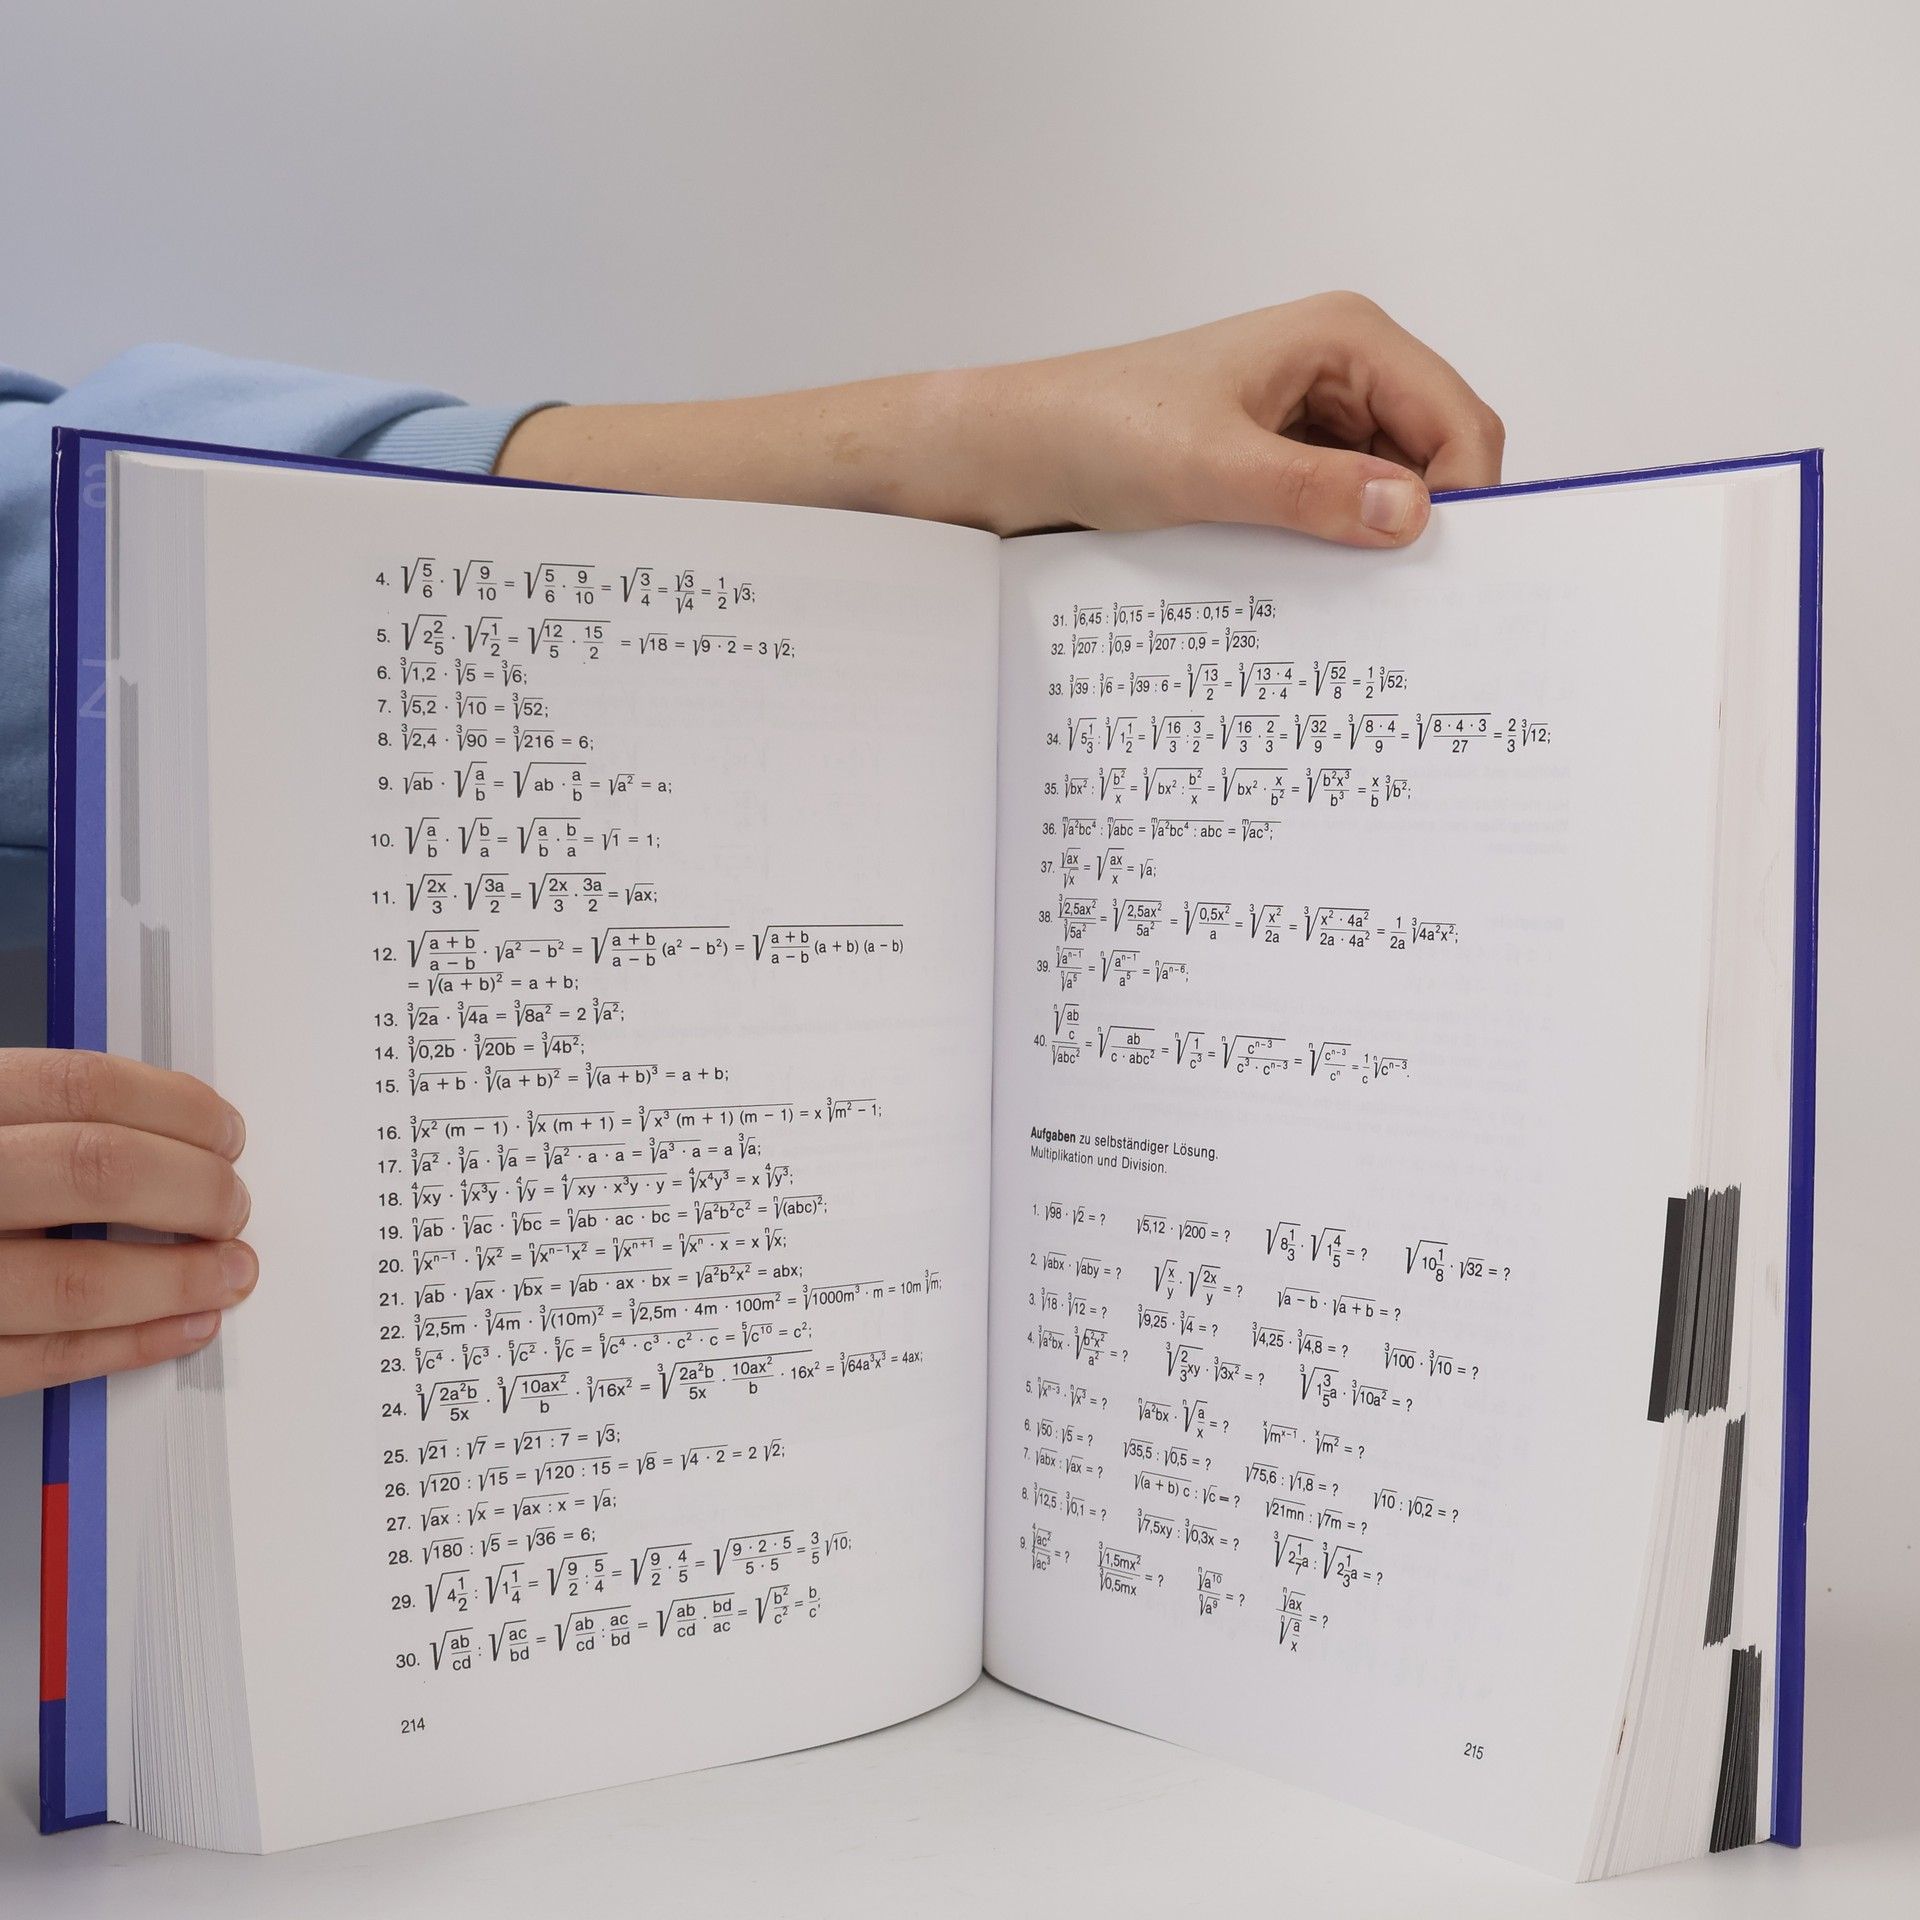 4. √(5/6) · √(9/10) = √(5/6 · 9/10) = √(3/4) = √3/√4 = 1/2 √3;
5. √(2 2/5) · √(7 1/2) = √(12/5 · 15/2) = √18 = √(9 · 2) = 3 √2;
6. ∛1,2 · ∛5 = ∛6;
7. ∛5,2 · ∛10 = ∛52;
8. ∛2,4 · ∛90 = ∛216 = 6;
9. √ab · √(a/b) = √(ab · a/b) = √a² = a;
10. √(a/b) · √(b/a) = √(a/b · b/a) = √1 = 1;
11. √(2x/3) · √(3a/2) = √(2x/3 · 3a/2) = √ax;
12. √((a + b)/(a − b)) · √(a² − b²) = √((a + b)/(a − b) (a² − b²)) = √((a + b)/(a − b) (a + b) (a − b))
= √(a + b)² = a + b;
13. ∛2a · ∛4a = ∛8a² = 2 ∛a²;
14. ∛0,2b · ∛20b = ∛4b²;
15. ∛(a + b) · ∛(a + b)² = ∛(a + b)³ = a + b;
16. ∛(x² (m − 1)) · ∛(x (m + 1)) = ∛(x³ (m + 1) (m − 1)) = x ∛(m² − 1);
17. ∛a² · ∛a · ∛a = ∛(a² · a · a) = ∛(a³ · a) = a ∛a;
18. ∜xy · ∜x³y · ∜y = ∜(xy · x³y · y) = ∜x⁴y³ = x ∜y³;
19. ⁿ√ab · ⁿ√ac · ⁿ√bc = ⁿ√(ab · ac · bc) = ⁿ√a²b²c² = ⁿ√(abc)²;
20. ⁿ√xⁿ⁻¹ · ⁿ√x² = ⁿ√xⁿ⁻¹x² = ⁿ√xⁿ⁺¹ = ⁿ√(xⁿ · x) = x ⁿ√x;
21. √ab · √ax · √bx = √(ab · ax · bx) = √a²b²x² = abx;
22. ∛2,5m · ∛4m · ∛(10m)² = ∛(2,5m · 4m · 100m²) = ∛(1000m³ · m) = 10m ∛m;
23. ⁵√c⁴ · ⁵√c³ · ⁵√c² · ⁵√c = ⁵√(c⁴ · c³ · c² · c) = ⁵√c¹⁰ = c²;
24. ∛(2a²b/5x) · ∛(10ax²/b) · ∛16x² = ∛(2a²b/5x · 10ax²/b · 16x²) = ∛64a³x³ = 4ax;
25. √21 : √7 = √(21 : 7) = √3;
26. √120 : √15 = √(120 : 15) = √8 = √(4 · 2) = 2 √2;
27. √ax : √x = √(ax : x) = √a;
28. √180 : √5 = √36 = 6;
29. √(4 1/2) : √(1 1/4) = √(9/2 : 5/4) = √(9/2 · 4/5) = √((9 · 2 · 5)/(5 · 5)) = 3/5 √10;
30. √(ab/cd) : √(ac/bd) = √(ab/cd : ac/bd) = √(ab/cd · bd/ac) = √(b²/c²) = b/c;
214
31. ∛6,45 : ∛0,15 = ∛(6,45 : 0,15) = ∛43;
32. ∛207 : ∛0,9 = ∛(207 : 0,9) = ∛230;
33. ∛39 : ∛6 = ∛(39 : 6) = ∛(13/2) = ∛((13 · 4)/(2 · 4)) = ∛(52/8) = 1/2 ∛52;
34. ∛(5 1/3) : ∛(1 1/2) = ∛(16/3 : 3/2) = ∛(16/3 · 2/3) = ∛(32/9) = ∛((8 · 4)/9) = ∛((8 · 4 · 3)/27) = 2/3 ∛12;
35. ∛bx² : ∛(b²/x) = ∛(bx² : b²/x) = ∛(bx² · x/b²) = ∛(b²x³/b³) = x/b ∛b²;
36. ᵐ√a²bc⁴ : ᵐ√abc = ᵐ√(a²bc⁴ : abc) = ᵐ√ac³;
37. √ax/√x = √(ax/x) = √a;
38. ∛2,5ax²/∛5a² = ∛(2,5ax²/5a²) = ∛(0,5x²/a) = ∛(x²/2a) = ∛((x² · 4a²)/(2a · 4a²)) = 1/2a ∛4a²x²;
39. ⁿ√aⁿ⁻¹/ⁿ√a⁵ = ⁿ√(aⁿ⁻¹/a⁵) = ⁿ√aⁿ⁻⁶;
40. ⁿ√(ab/c)/ⁿ√abc² = ⁿ√(ab/(c · abc²)) = ⁿ√(1/c³) = ⁿ√(cⁿ⁻³/(c³ · cⁿ⁻³)) = ⁿ√(cⁿ⁻³/cⁿ) = 1/c ⁿ√cⁿ⁻³.
Aufgaben zu selbständiger Lösung.
Multiplikation und Division.
1. √98 · √2 = ? √5,12 · √200 = ? √(8 1/3) · √(1 4/5) = ? √(10 1/8) · √32 = ?
2. √abx · √aby = ? √(x/y) · √(2x/y) = ? √(a − b) · √(a + b) = ?
3. ∛18 · ∛12 = ? ∛9,25 · ∛4 = ? ∛4,25 · ∛4,8 = ? ∛100 · ∛10 = ?
4. ∛a²bx · ∛(b²x²/a²) = ? ∛(2/3 xy) · ∛3x² = ? ∛(1 3/5 a) · ∛10a² = ?
5. ⁿ√xⁿ⁻³ · ⁿ√x³ = ? ⁿ√a²bx · ⁿ√(a/x) = ? ˣ√mˣ⁻¹ · ˣ√m² = ?
6. √50 : √5 = ? √35,5 : √0,5 = ? √75,6 : √1,8 = ? √10 : √0,2 = ?
7. √abx : √ax = ? √((a + b) c) : √c = ? √21mn : √7m = ?
8. ∛12,5 : ∛0,1 = ? ∛7,5xy : ∛0,3x = ? ∛(2 1/7 a) : ∛(2 1/3 a) = ?
9. ∜ac²/∜ac³ = ? ∛1,5mx²/∛0,5mx = ? ⁿ√a¹⁰/ⁿ√a⁹ = ? ⁿ√ax/ⁿ√(a/x) = ?
215